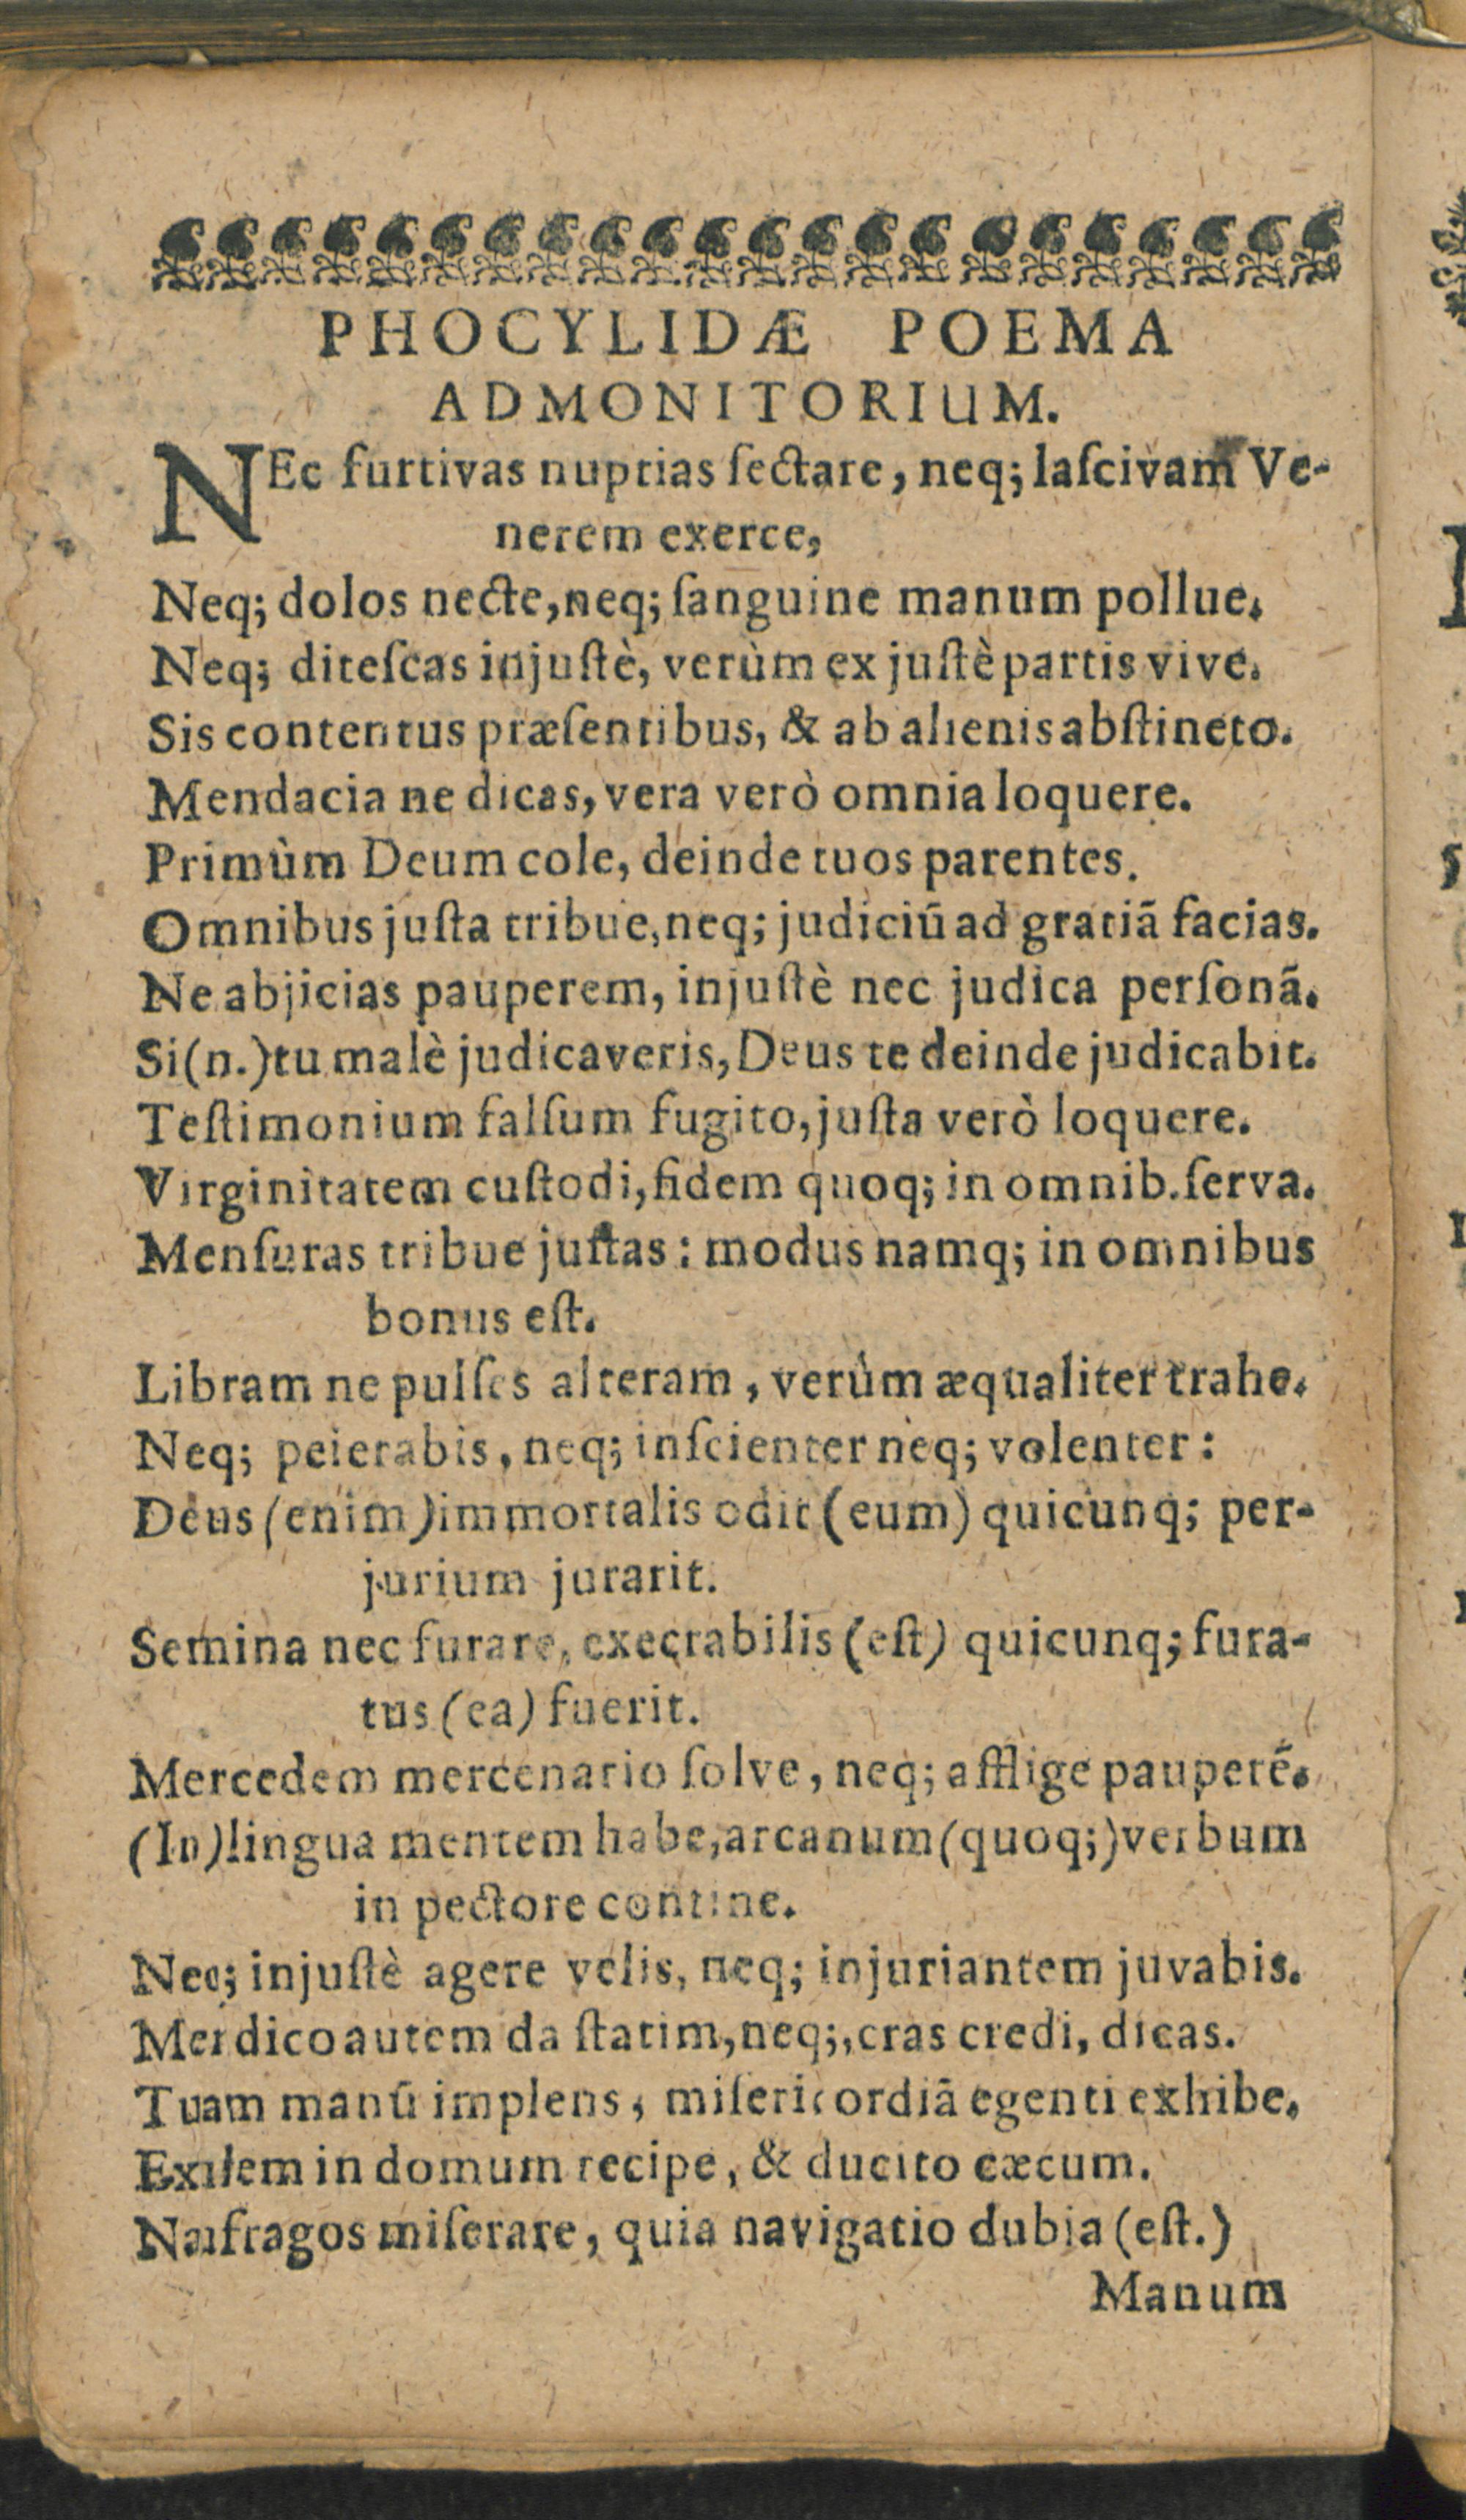 PHOCYLIDÆ POEMA
ADMONITORIUM.
NEc furtivas nuptias ſectare, neq; laſcivam Ve-
nerem exerce,
Neq; dolos necte, neq; ſanguine manum pollue.
Neq; diteſcas injuſtè, verùm ex juſtè partis vive.
Sis contentus præſentibus, & ab alienis abſtineto.
Mendacia ne dicas, vera verò omnia loquere.
Primùm Deum cole, deinde tuos parentes.
Omnibus juſta tribue, neq; judiciū ad gratiā facias.
Ne abjicias pauperem, injuſtè nec judica perſonā.
Si (n.) tu malè judicaveris, Deus te deinde judicabit.
Teſtimonium falſum fugito, juſta verò loquere.
Virginitatem cuſtodi, fidem quoq; in omnib. ſerva.
Menſuras tribue juſtas: modus namq; in omnibus
bonus eſt.
Libram ne pulſes alteram, verùm æqualiter trahe.
Neq; peierabis, neq; inſcienter neq; volenter:
Deus (enim) immortalis odit (eum) quicunq; per-
jurium jurarit.
Semina nec furare, execrabilis (eſt) quicunq; fura-
tus (ea) fuerit.
Mercedem mercenario ſolve, neq; afflige pauperē.
(In) lingua mentem habe, arcanum (quoq;) verbum
in pectore contine.
Nec; injuſtè agere velis, neq; injuriantem juvabis.
Merdico autem da ſtatim, neq;, cras credi, dicas.
Tuam manū implens, miſericordiā egenti exhibe.
Exulem in domum recipe, & ducito cæcum.
Naufragos miſerare, quia navigatio dubia (eſt.)
Manum